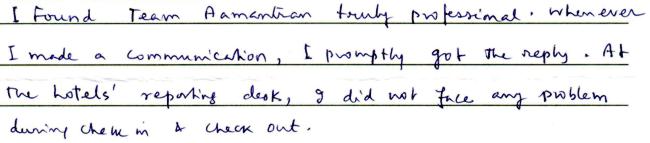 I Found Team Aamantran truly professional. whenever
I made a communication, I promptly got the reply. At
the hotels' reporting desk, I did not face any problem
during check in & check out.